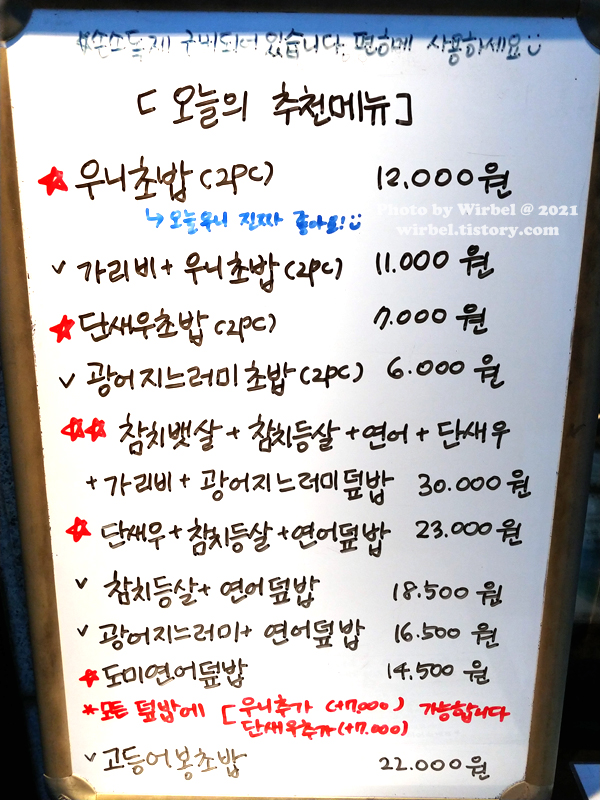 *손소독제 구비되어 있습니다. 편하게 사용하세요
[오늘의 추천메뉴]
우니초밥(2pc) 12.000원
Photo by Wirbel @ 2021
↳ 오늘 우니 진짜 좋아요!
wirbel.tistory.com
✓ 가리비+우니초밥(2pc) 11.000원
단새우초밥(2pc) 7.000원
✓ 광어지느러미초밥(2pc) 6.000원
참치뱃살+참치등살+연어+단새우
+가리비+광어지느러미덮밥 30.000원
단새우+참치등살+연어덮밥 23.000원
✓ 참치등살+연어덮밥 18.500원
✓ 광어지느러미+연어덮밥 16.500원
도미연어덮밥 14.500원
*모든 덮밥에 [우니추가 (+7.000) 가능합니다
단새우추가(+7.000)
✓ 고등어봉초밥 22.000원